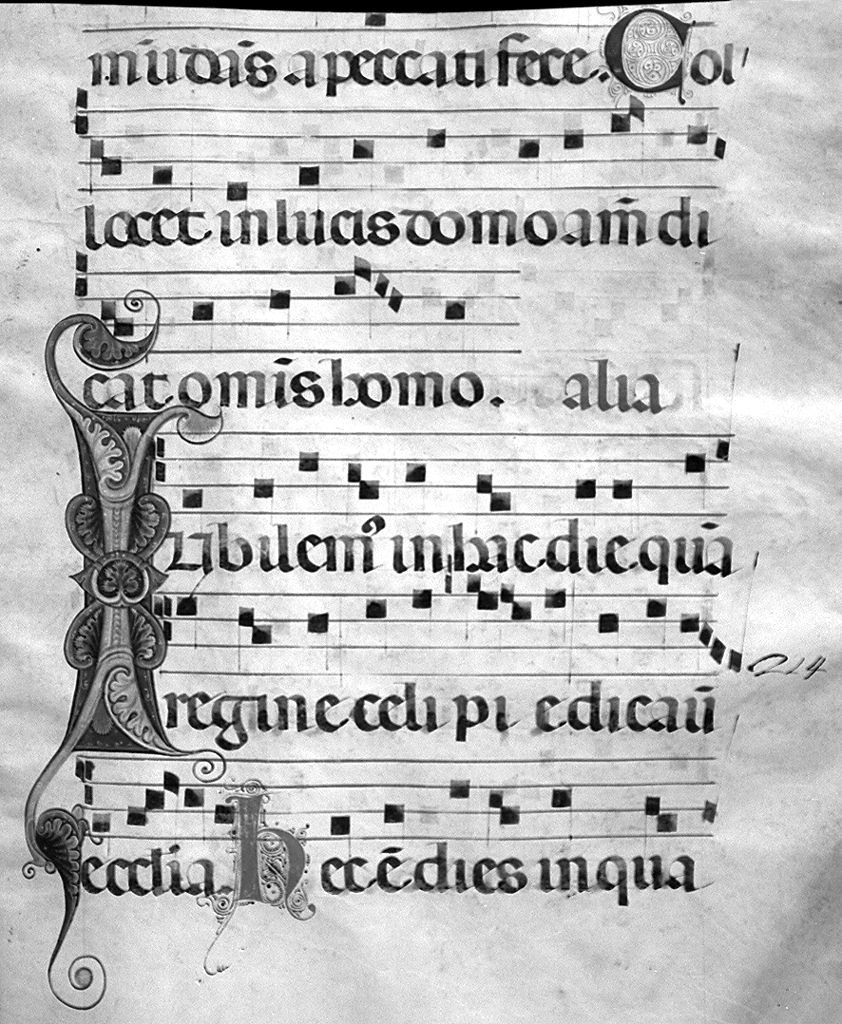 mūdās a peccati fece. Col
locet in lucis domo am̄ di
cat omīs homo. alia
Iubilem⁹ in hac die quā
regine celi pie dicaū
ecclīa. hec ē dies in qua
214